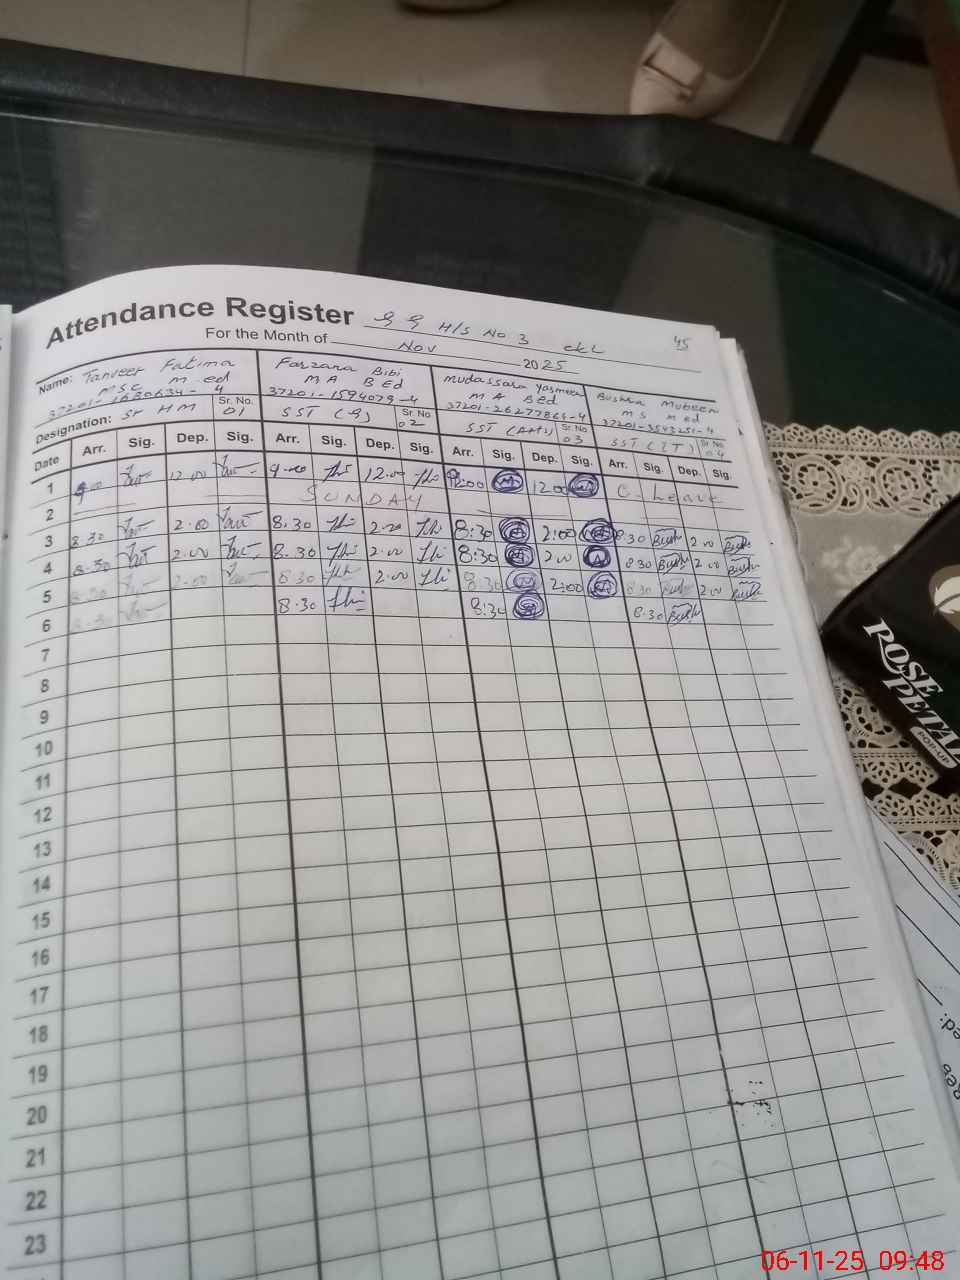 Attendance Register G G H/S No 3 ckl 45
For the Month of Nov 2025
Name: Tanveer Fatima Farzana Bibi Mudassara Yasmeen Bushra Mubeen
MSC M ed M A B Ed M A Bed M S M ed
37201-1594079-4 37201-2627786-4 37201-3543251-4
Designation: Sr H M Sr. No. 01 SST (G) Sr. No. 02 SST (Arts) Sr. No. 03 SST (IT) Sr No 04
Date Arr. Sig. Dep. Sig. Arr. Sig. Dep. Sig. Arr. Sig. Dep. Sig. Arr. Sig. Dep. Sig.
1 9.00 12.00 9.00 12.00 9:00 12:00 C. Leave
2 SUNDAY
3 8.30 2.00 8.30 2.00 8:30 2:00 8.30 Bush 2.00 Bush
4 8.30 2.00 8.30 2.00 8:30 2:00 8.30 Bush 2.00 Bush
5 8.30 2.00 8.30 2.00 8:30 2:00 8.30 Bush 2.00 Bush
6 8.30 8.30 8:30 8.30 Bush
7
8
9
10
11
12
13
14
15
16
17
18
19
20
21
22
23
ROSE
PETAL
POP-UP
06-11-25 09:48